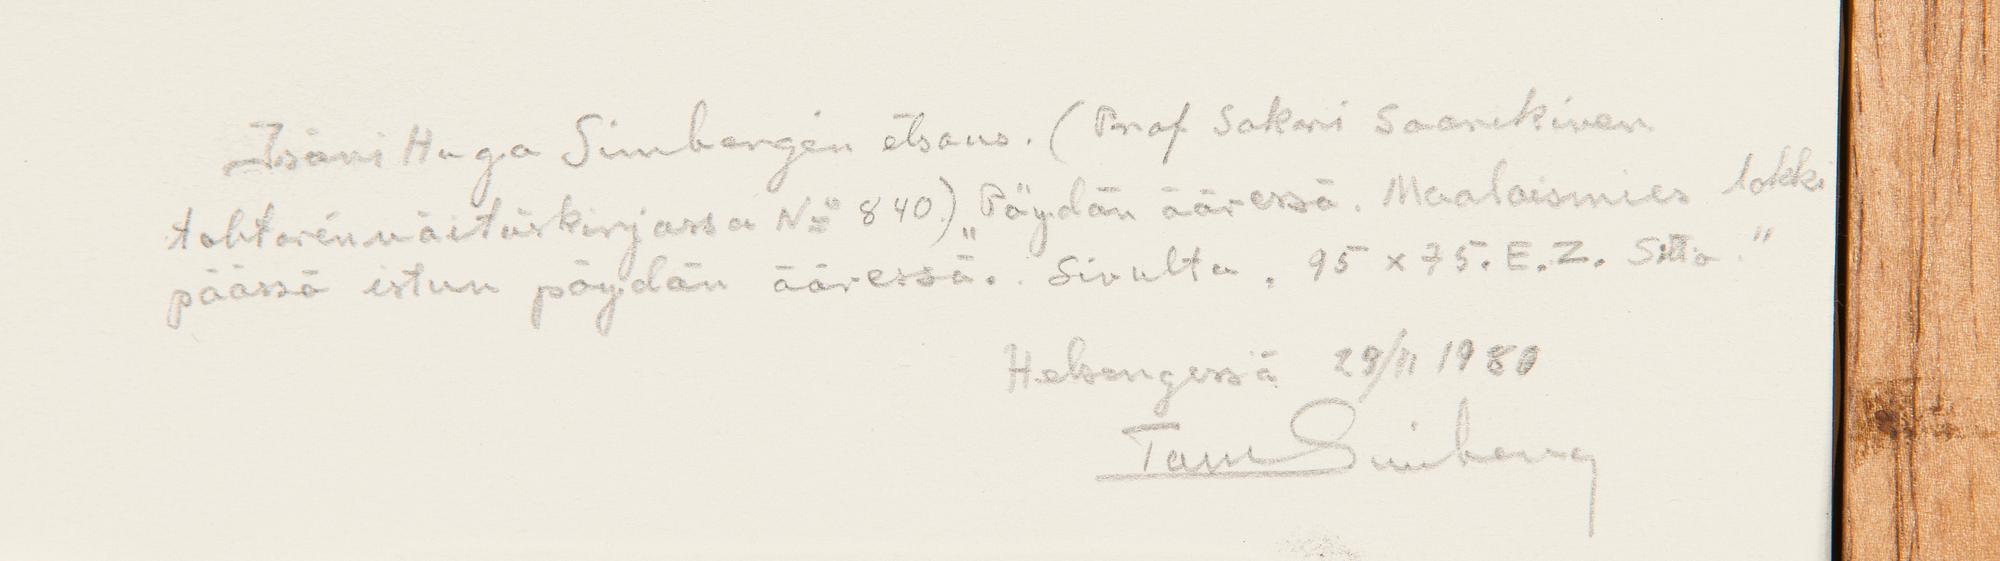 Isäni Hugo Simbergin etsaus. (Prof Sakari Saarikiven
tohtorinväitöskirjassa No 840.) „Pöydän ääressä. Maalaismies lakki
päässä istuu pöydän ääressä. Sivulta. 95 x 75. E.Z. Sitta."
Helsingissä 29/11 1980
Tom Simberg